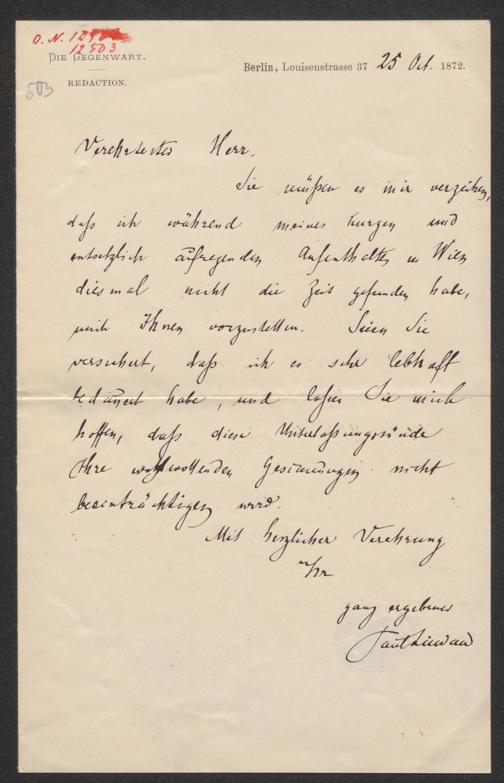 O. N. 12503
DIE GEGENWART.
REDACTION.
503
Berlin, Louisenstrasse 37 25 Oct. 1872.
Verehrtester Herr.
Sie müßen es mir verzeihen,
daß ich während meines kurzen und
entsetzlich aufregenden Aufenthaltes in Wien
diesmal nicht die Zeit gefunden habe,
mich Ihnen vorzustellen. Seien Sie
versichert, daß ich es sehr lebhaft
bedauert habe, und laßen Sie mich
hoffen, daß diese Unterlassungssünde
Ihre wohlwollenden Gesinnungen nicht
beeinträchtigen wird.
Mit herzlicher Verehrung
Ihr
ganz ergebener
Paul Lindau